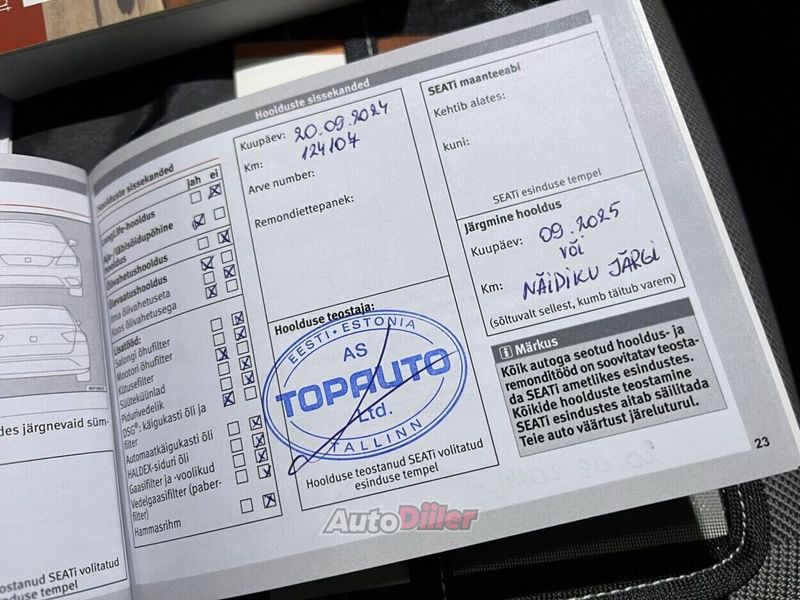 Hoolduste sissekanded
Hoolduste sissekanded
jah ei
LongLife-hooldus
Aja-/läbisõidupõhine
hooldus
Õlivahetushooldus
Ülevaatushooldus
Ilma õlivahetuseta
Koos õlivahetusega
Lisatööd:
Salongi õhufilter
Mootori õhufilter
Kütusefilter
Süüteküünlad
Pidurivedelik
DSG®: käigukasti õli ja
filter
Automaatkäigukasti õli
HALDEX-siduri õli
Gaasifilter ja -voolikud
Vedelgaasifilter (paber-
filter)
Hammasrihm
Kuupäev: 20.09.2024
Km: 124107
Arve number:
Remondiettepanek:
Hoolduse teostaja:
EESTI • ESTONIA
AS
TOPAUTO
Ltd.
TALLINN
Hoolduse teostanud SEATi volitatud
esinduse tempel
SEATi maanteeabi
Kehtib alates:
kuni:
SEATi esinduse tempel
Järgmine hooldus
Kuupäev: 09.2025
või
Km: NÄIDIKU JÄRGI
(sõltuvalt sellest, kumb täitub varem)
Märkus
Kõik autoga seotud hooldus- ja
remonditööd on soovitatav teosta-
da SEATi ametlikes esindustes.
Kõikide hoolduste teostamine
SEATi esindustes aitab säilitada
Teie auto väärtust järeluturul.
23
des järgnevaid süm-
eostanud SEATi volitatud
esinduse tempel
AutoDiiler